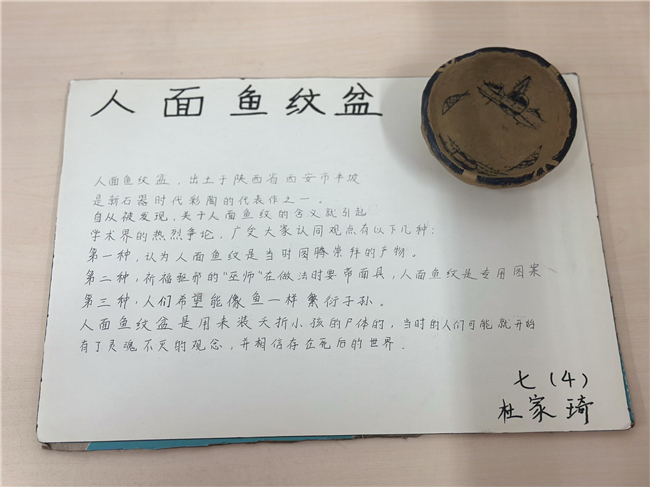 人面鱼纹盆
人面鱼纹盆，出土于陕西省西安市半坡
是新石器时代彩陶的代表作之一。
自从被发现，关于人面鱼纹的含义就引起
学术界的热烈争论，广受大家认同观点有以下几种：
第一种，认为人面鱼纹是当时图腾崇拜的产物。
第二种，祈福驱邪的"巫师"在做法时要带面具，人面鱼纹是专用图案
第三种，人们希望能像鱼一样繁衍子孙。
人面鱼纹盆是用来装夭折小孩的尸体的，当时的人们可能就开始
有了灵魂不灭的观念，并相信存在死后的世界．
七（4）
杜家琦